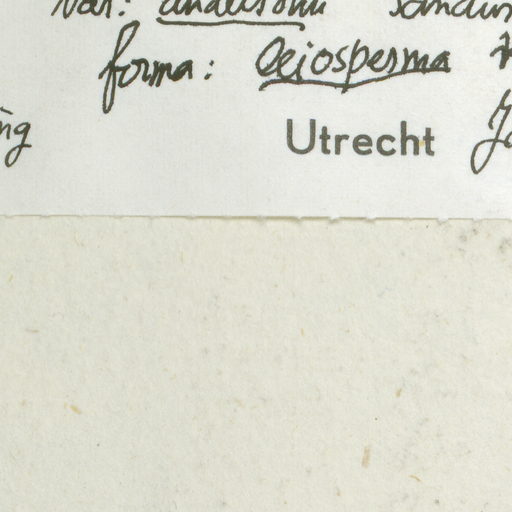 var: andersonii
forma: leiosperma
ing Utrecht